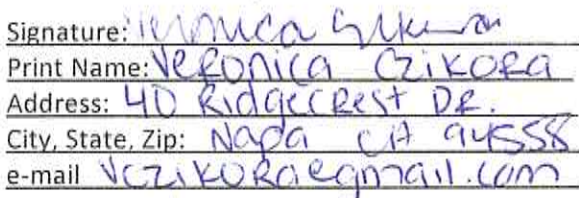 Signature: Veronica Czikora
Print Name: Veronica Czikora
Address: 40 Ridgecrest DR.
City, State, Zip: Napa CA 94558
e-mail vczikora@gmail.com